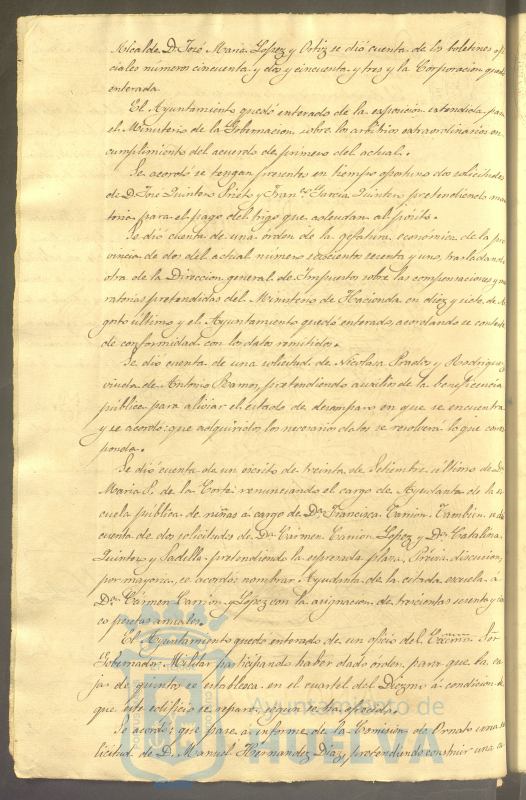 Alcalde D. José Maria Lopez y Ortiz se dió cuenta de los boletines ofi
ciales números cincuenta y dos y cincuenta y tres y la Corporacion quedó
enterada.
El Ayuntamiento quedó enterado de la exposicion estendida para
el Ministerio de la Gobernacion sobre los arbitrios extraordinarios en
cumplimiento del acuerdo de primero del actual.
Se acordó se tengan presentes en tiempo oportuno dos solicitudes
de D. José Quintero Prieto y Franco. Garcia Quintero pretendiendo mo
toria para el pago del trigo que adeudan al pósito.
Se dió cuenta de una órden de la gefatura económica de la pro
vincia de dos del actual número seiscientos sesenta y uno, trasladando
otra de la Direccion general de Impuestos sobre las compensaciones y mo
ratorias pretendidas del Ministerio de Hacienda en diez y siete de A
gosto último y el Ayuntamiento quedó enterado, acordando se conteste
de conformidad con los datos remitidos.
Se dió cuenta de una solicitud de Nicolasa Prados y Rodriguez
viuda de Antonio Ramos, pretendiendo auxilios de la beneficencia
pública para aliviar el estado de desamparo en que se encuentra
y se acordó: que adquiridos los necesarios datos se resolverá lo que corres
ponda.
Se dió cuenta de un escrito de treinta de Setiembre último de Da.
Maria S. de la Corte renunciando el cargo de Ayudanta de la es
cuela pública de niñas á cargo de Da. Francisca Carrion. Tambien se dió
cuenta de dos solicitudes de Da. Cármen Carrion Lopez y Da. Catalina
Quintero y Sadella pretendiendo la espresada plaza. Prévia discusion,
por mayoria, se acordó: nombrar Ayudanta de la citada escuela á
Da. Cármen Carrion y Lopez con la asignacion de trescientas sesenta y cin
co pesetas anuales.
El Ayuntamiento quedó enterado de un oficio del Excmo. Señor
Gobernador Militar participando haber dado órden para que la ca
ja de quintos se establezca en el cuartel del Diezmo á condicion de
que este edificio se repare, segun se ha ofrecido.
Se acordó: que pase á informe de la Comision de Ornato una so
licitud de D. Manuel Hernandez Diaz, pretendiendo construir una ca
Ayuntamiento de
HUELVA